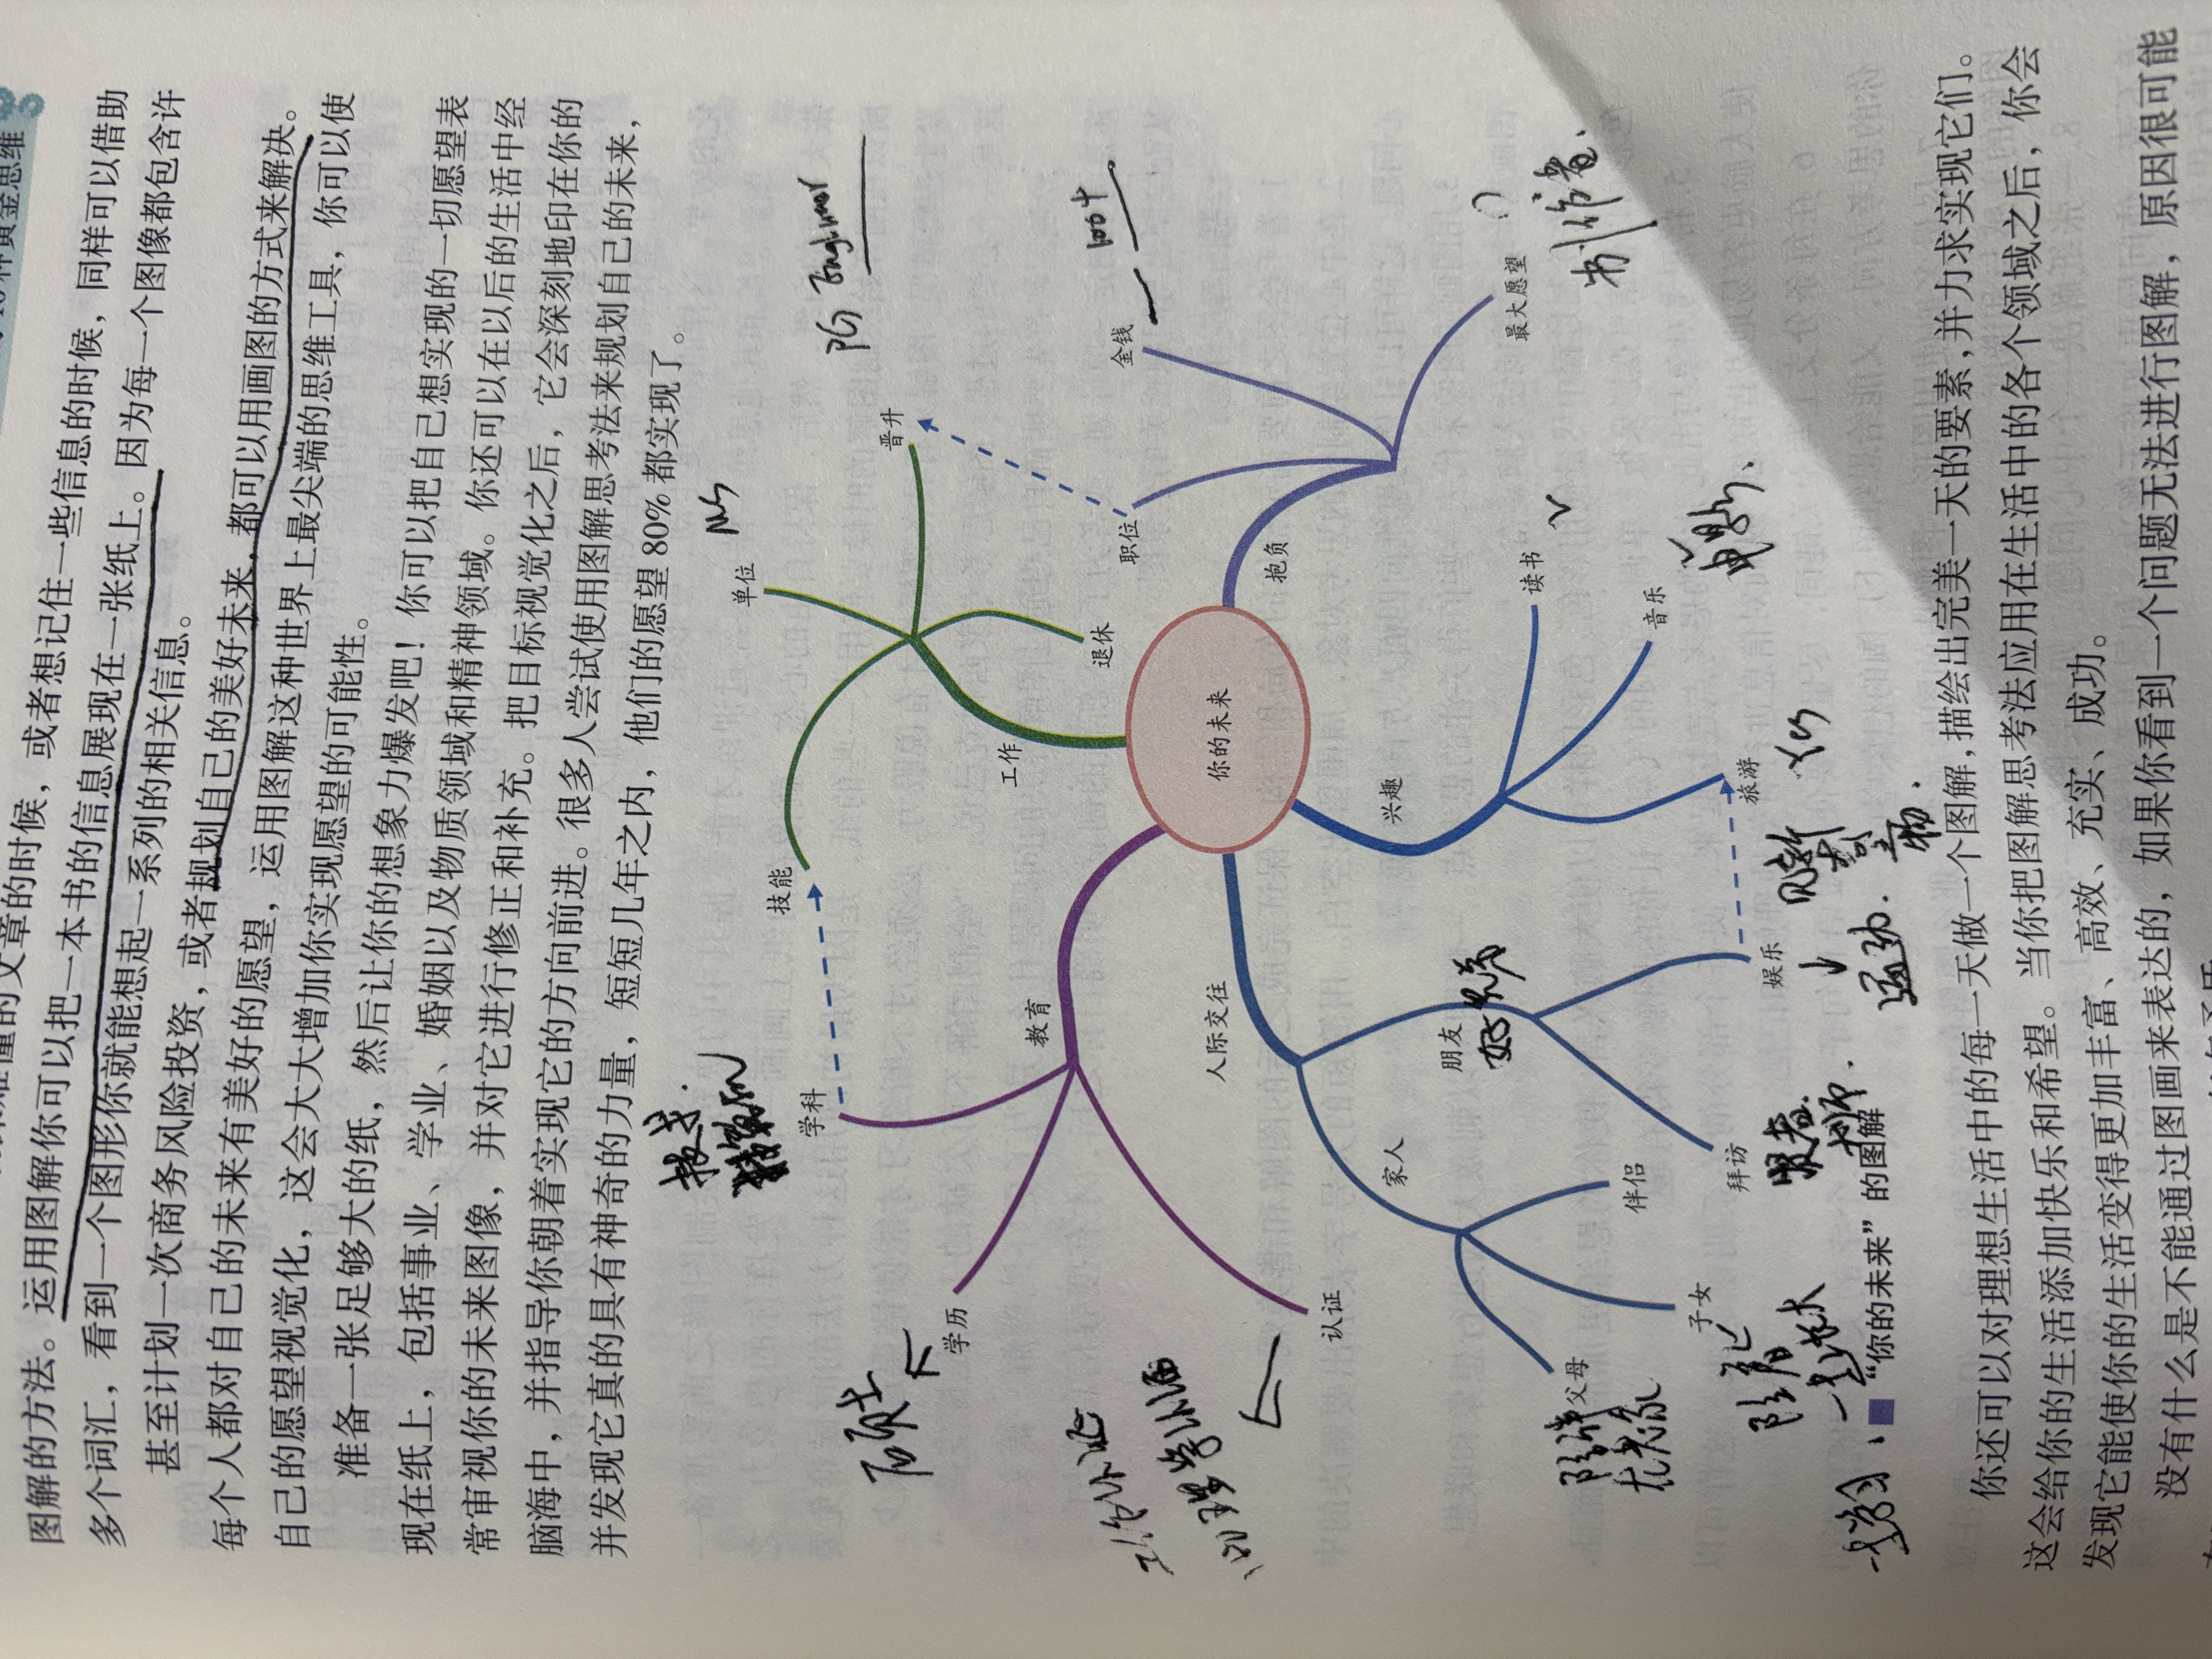 种黄金思维
图解的方法。运用图解你可以把一本书的信息展现在一张纸上。因为每一个图像都包含许
多个词汇，看到一个图形你就能想起一系列的相关信息。
甚至计划一次商务风险投资，或者规划自己的美好未来，都可以用画图的方式来解决。
每个人都对自己的未来有美好的愿望，运用图解这种世界上最尖端的思维工具，你可以使
自己的愿望视觉化，这会大大增加你实现愿望的可能性。
准备一张足够大的纸，然后让你的想象力爆发吧！你可以把自己想实现的一切愿望表
现在纸上，包括事业、学业、婚姻以及物质领域和精神领域。你还可以在以后的生活中经
常审视你的未来图像，并对它进行修正和补充。把目标视觉化之后，它会深刻地印在你的
脑海中，并指导你朝着实现它的方向前进。很多人尝试使用图解思考法来规划自己的未来，
并发现它真的具有神奇的力量，短短几年之内，他们的愿望80%都实现了。
单位
技能
学科
晋升
PG
硕士
学历
工作
退休
教育
职位
金钱
你的未来
人际交往
抱负
认证
兴趣
家人
朋友
读书
最大愿望
父母
伴侣
音乐
子女
拜访
娱乐
旅游
运动
“你的未来”的图解
你还可以对理想生活中的每一天做一个图解，描绘出完美一天的要素，并力求实现它们。
这会给你的生活添加快乐和希望。当你把图解思考法应用在生活中的各个领域之后，你会
发现它能使你的生活变得更加丰富、高效、充实、成功。
没有什么是不能通过图画来表达的，如果你看到一个问题无法进行图解，原因很可能